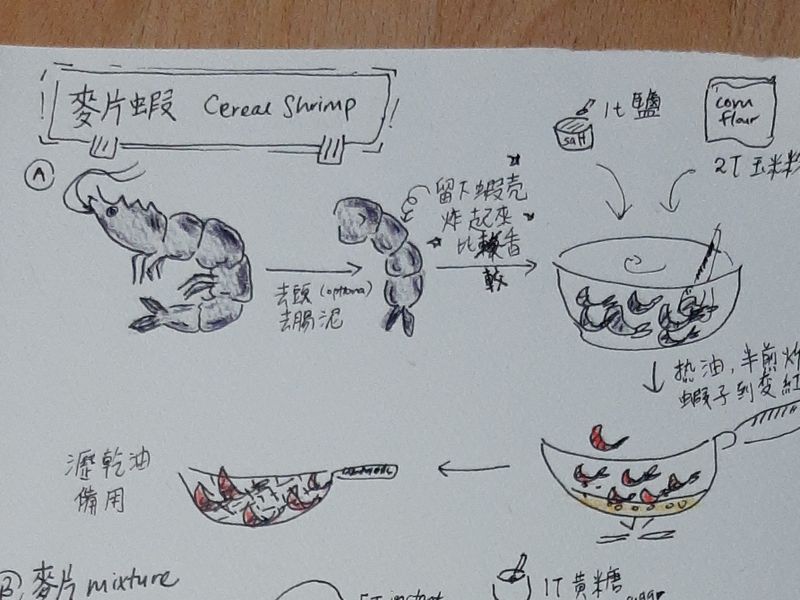 麥片蝦 Cereal Shrimp
A
1t 鹽
salt
corn
flour
2T 玉米粉
留下蝦壳
炸起來
比較香
較
去頭 (optional)
去腸泥
热油,半煎炸
蝦子到变紅
瀝乾油
備用
B 麥片 mixture
5T instant
1T 黃糖
sugar